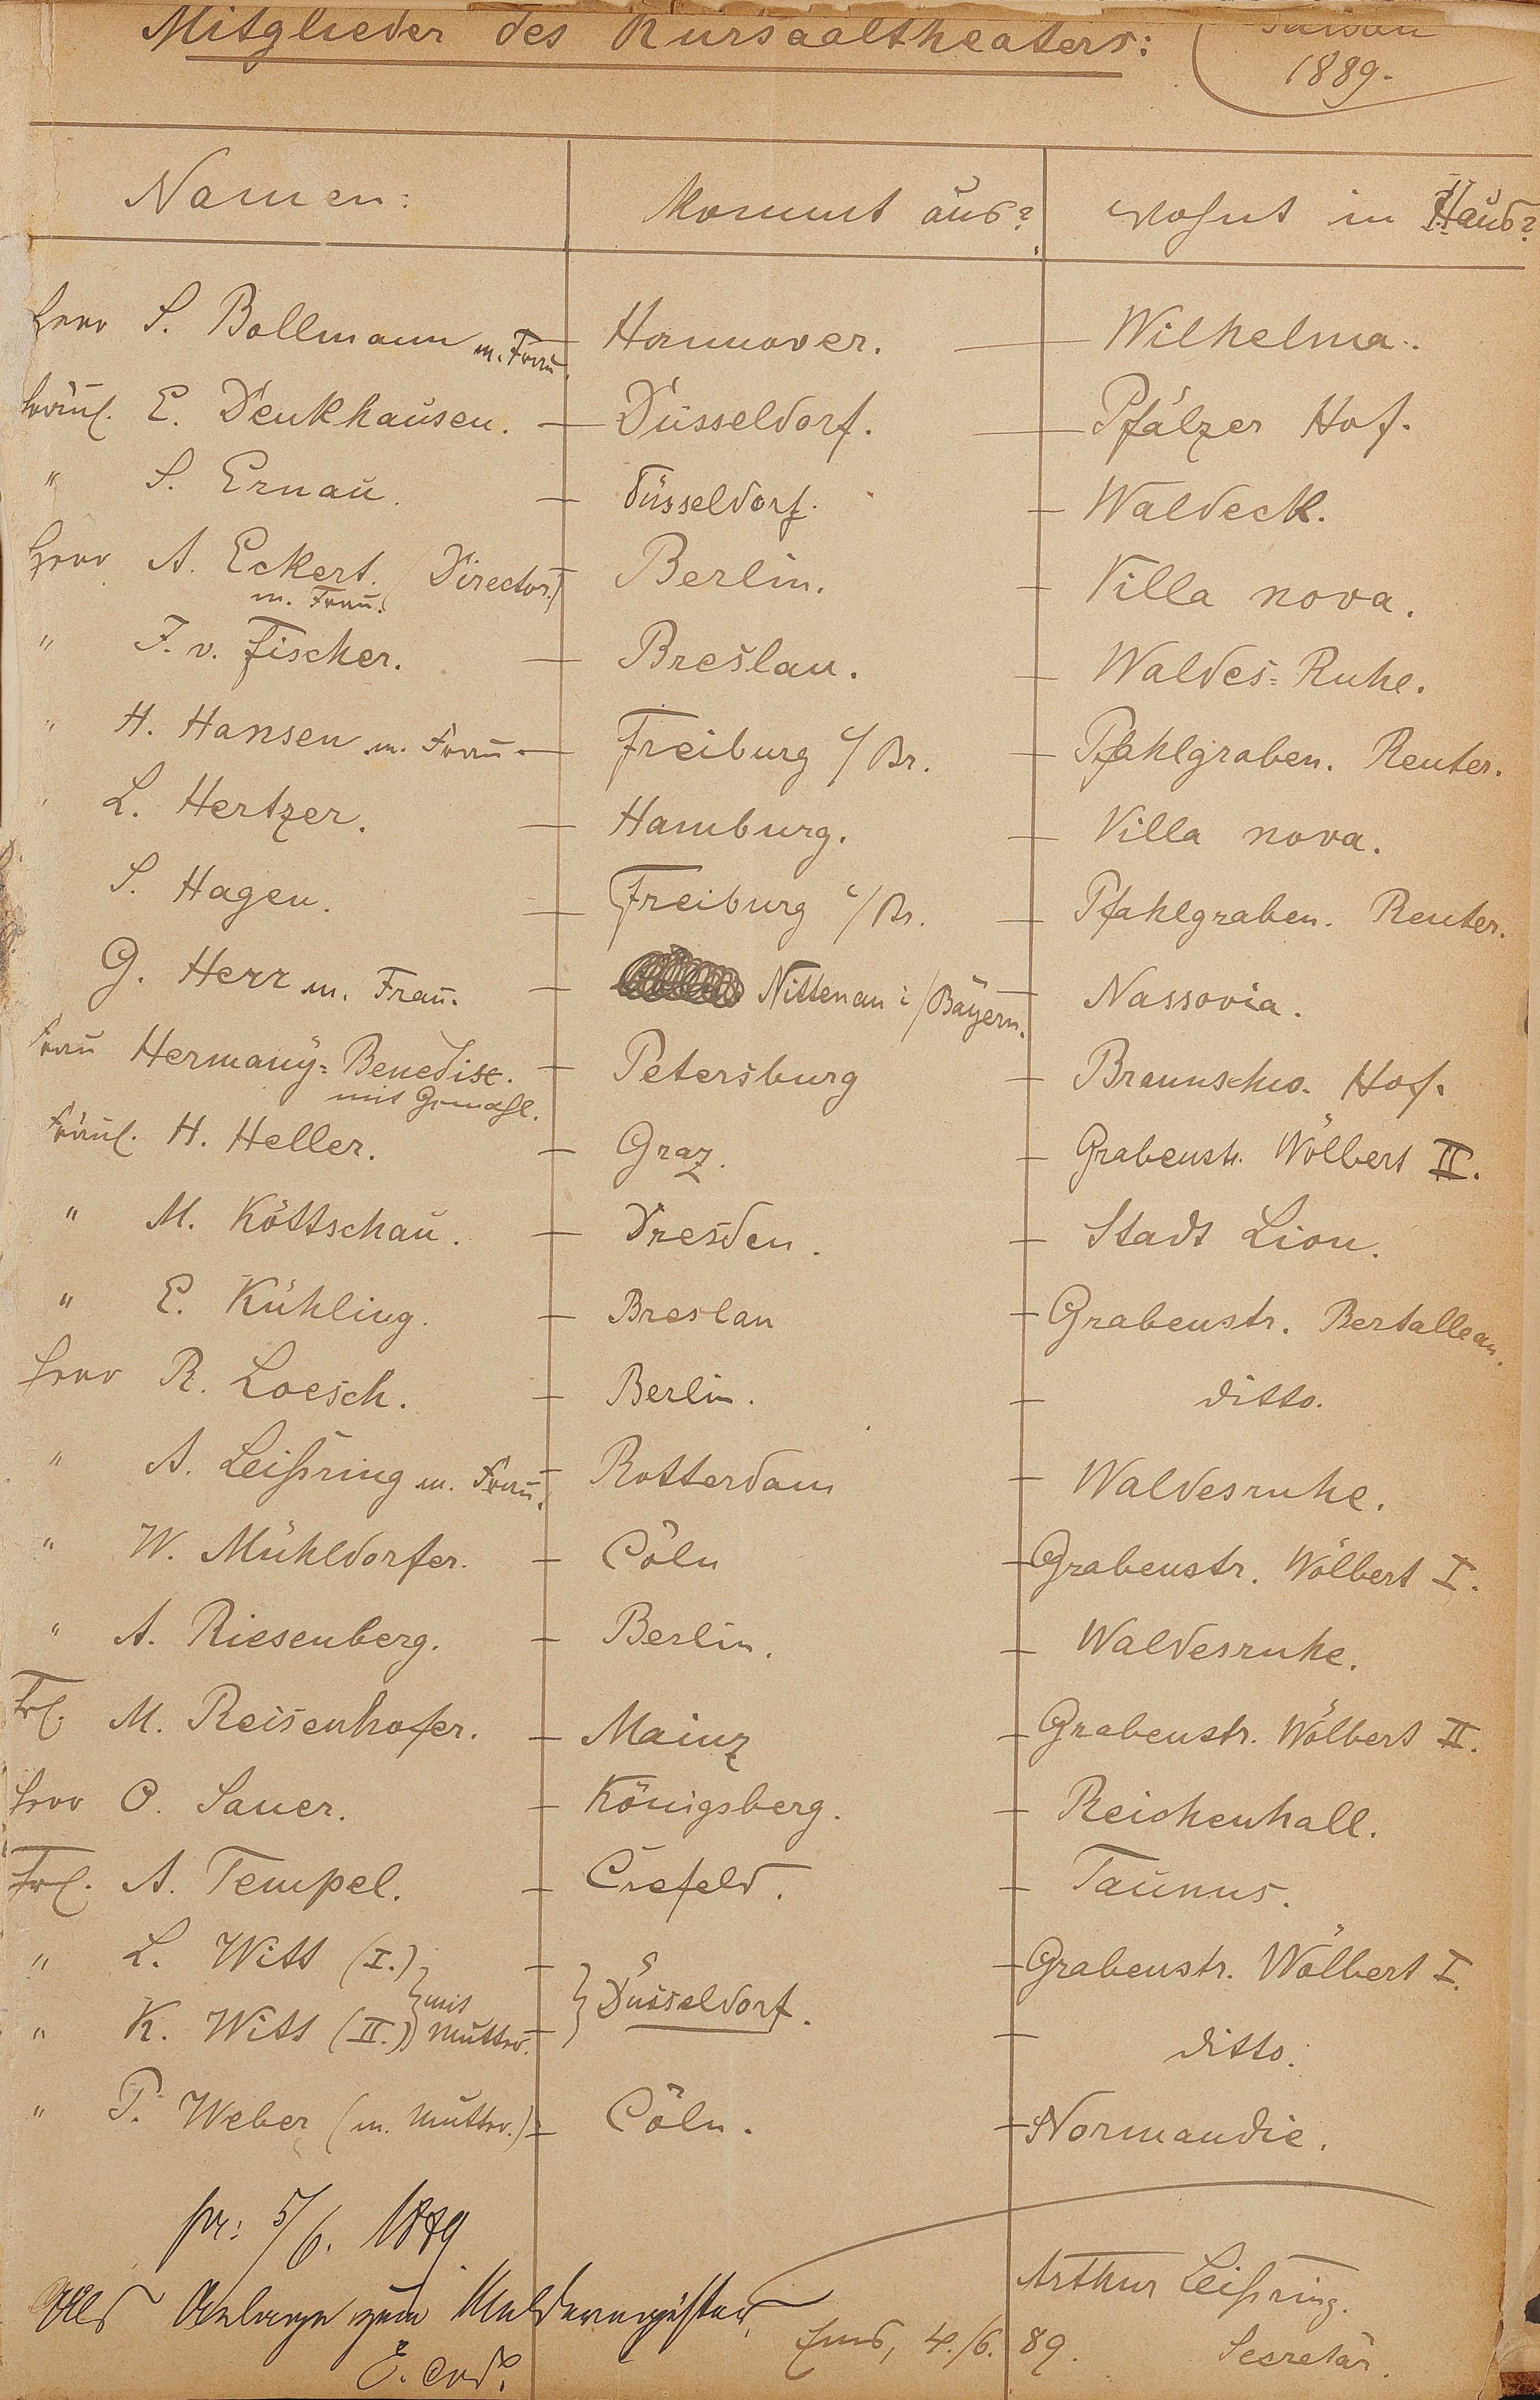 Mitglieder des Kursaaltheaters:
Saison
1889.
Namen: Kommt aus? wohnt in Haus?
Herr S. Bollmann m. Frau. — Hannover. — Wilhelma.
Fräul. E. Denkhausen. — Düsseldorf. — Pfälzer Hof.
" S. Ernau. — Düsseldorf. — Waldeck.
Herr A. Eckert. (Director.) — Berlin. — Villa nova.
m. Frau.
" F. v. Fischer. — Breslau. — Waldes-Ruhe.
" H. Hansen m. Frau. — Freiburg i/Br. — Pfahlgraben. Reuter.
" L. Hertzer. — Hamburg. — Villa nova.
S. Hagen. — Freiburg i/Br. — Pfahlgraben. Reuter.
G. Herr m. Frau. — Nittenau i/Bayern. — Nassovia.
Frau Hermany-Benedix. — Petersburg — Braunschw. Hof.
mit Gemahl.
Fräul. H. Heller. — Graz. — Grabenstr. Wölbert II.
" M. Köttschau. — Dresden. — Stadt Lion.
" E. Kühling. — Breslau — Grabenstr. Bertalleau.
Herr R. Loesch. — Berlin. — ditto.
" A. Leißring m. Frau. — Rotterdam — Waldesruhe.
" W. Mühldorfer. — Cöln — Grabenstr. Wölbert I.
" A. Riesenberg. — Berlin. — Waldesruhe.
Frl. M. Reisenhofer. — Mainz — Grabenstr. Wölbert II.
Herr O. Sauer. — Königsberg. — Reichenhall.
Frl. A. Tempel. — Crefeld. — Taunus.
" L. Witt (I.) — Düsseldorf. — Grabenstr. Wölbert I.
" K. Witt (II.) mit Mutter. — ditto.
" P. Weber (m. Mutter.) — Cöln. — Normandie.
pr: 5/6. 1889
Arthur Leißring.
Als Anlage zum Melderegister.
Ems, 4./6. 89. Secretär.